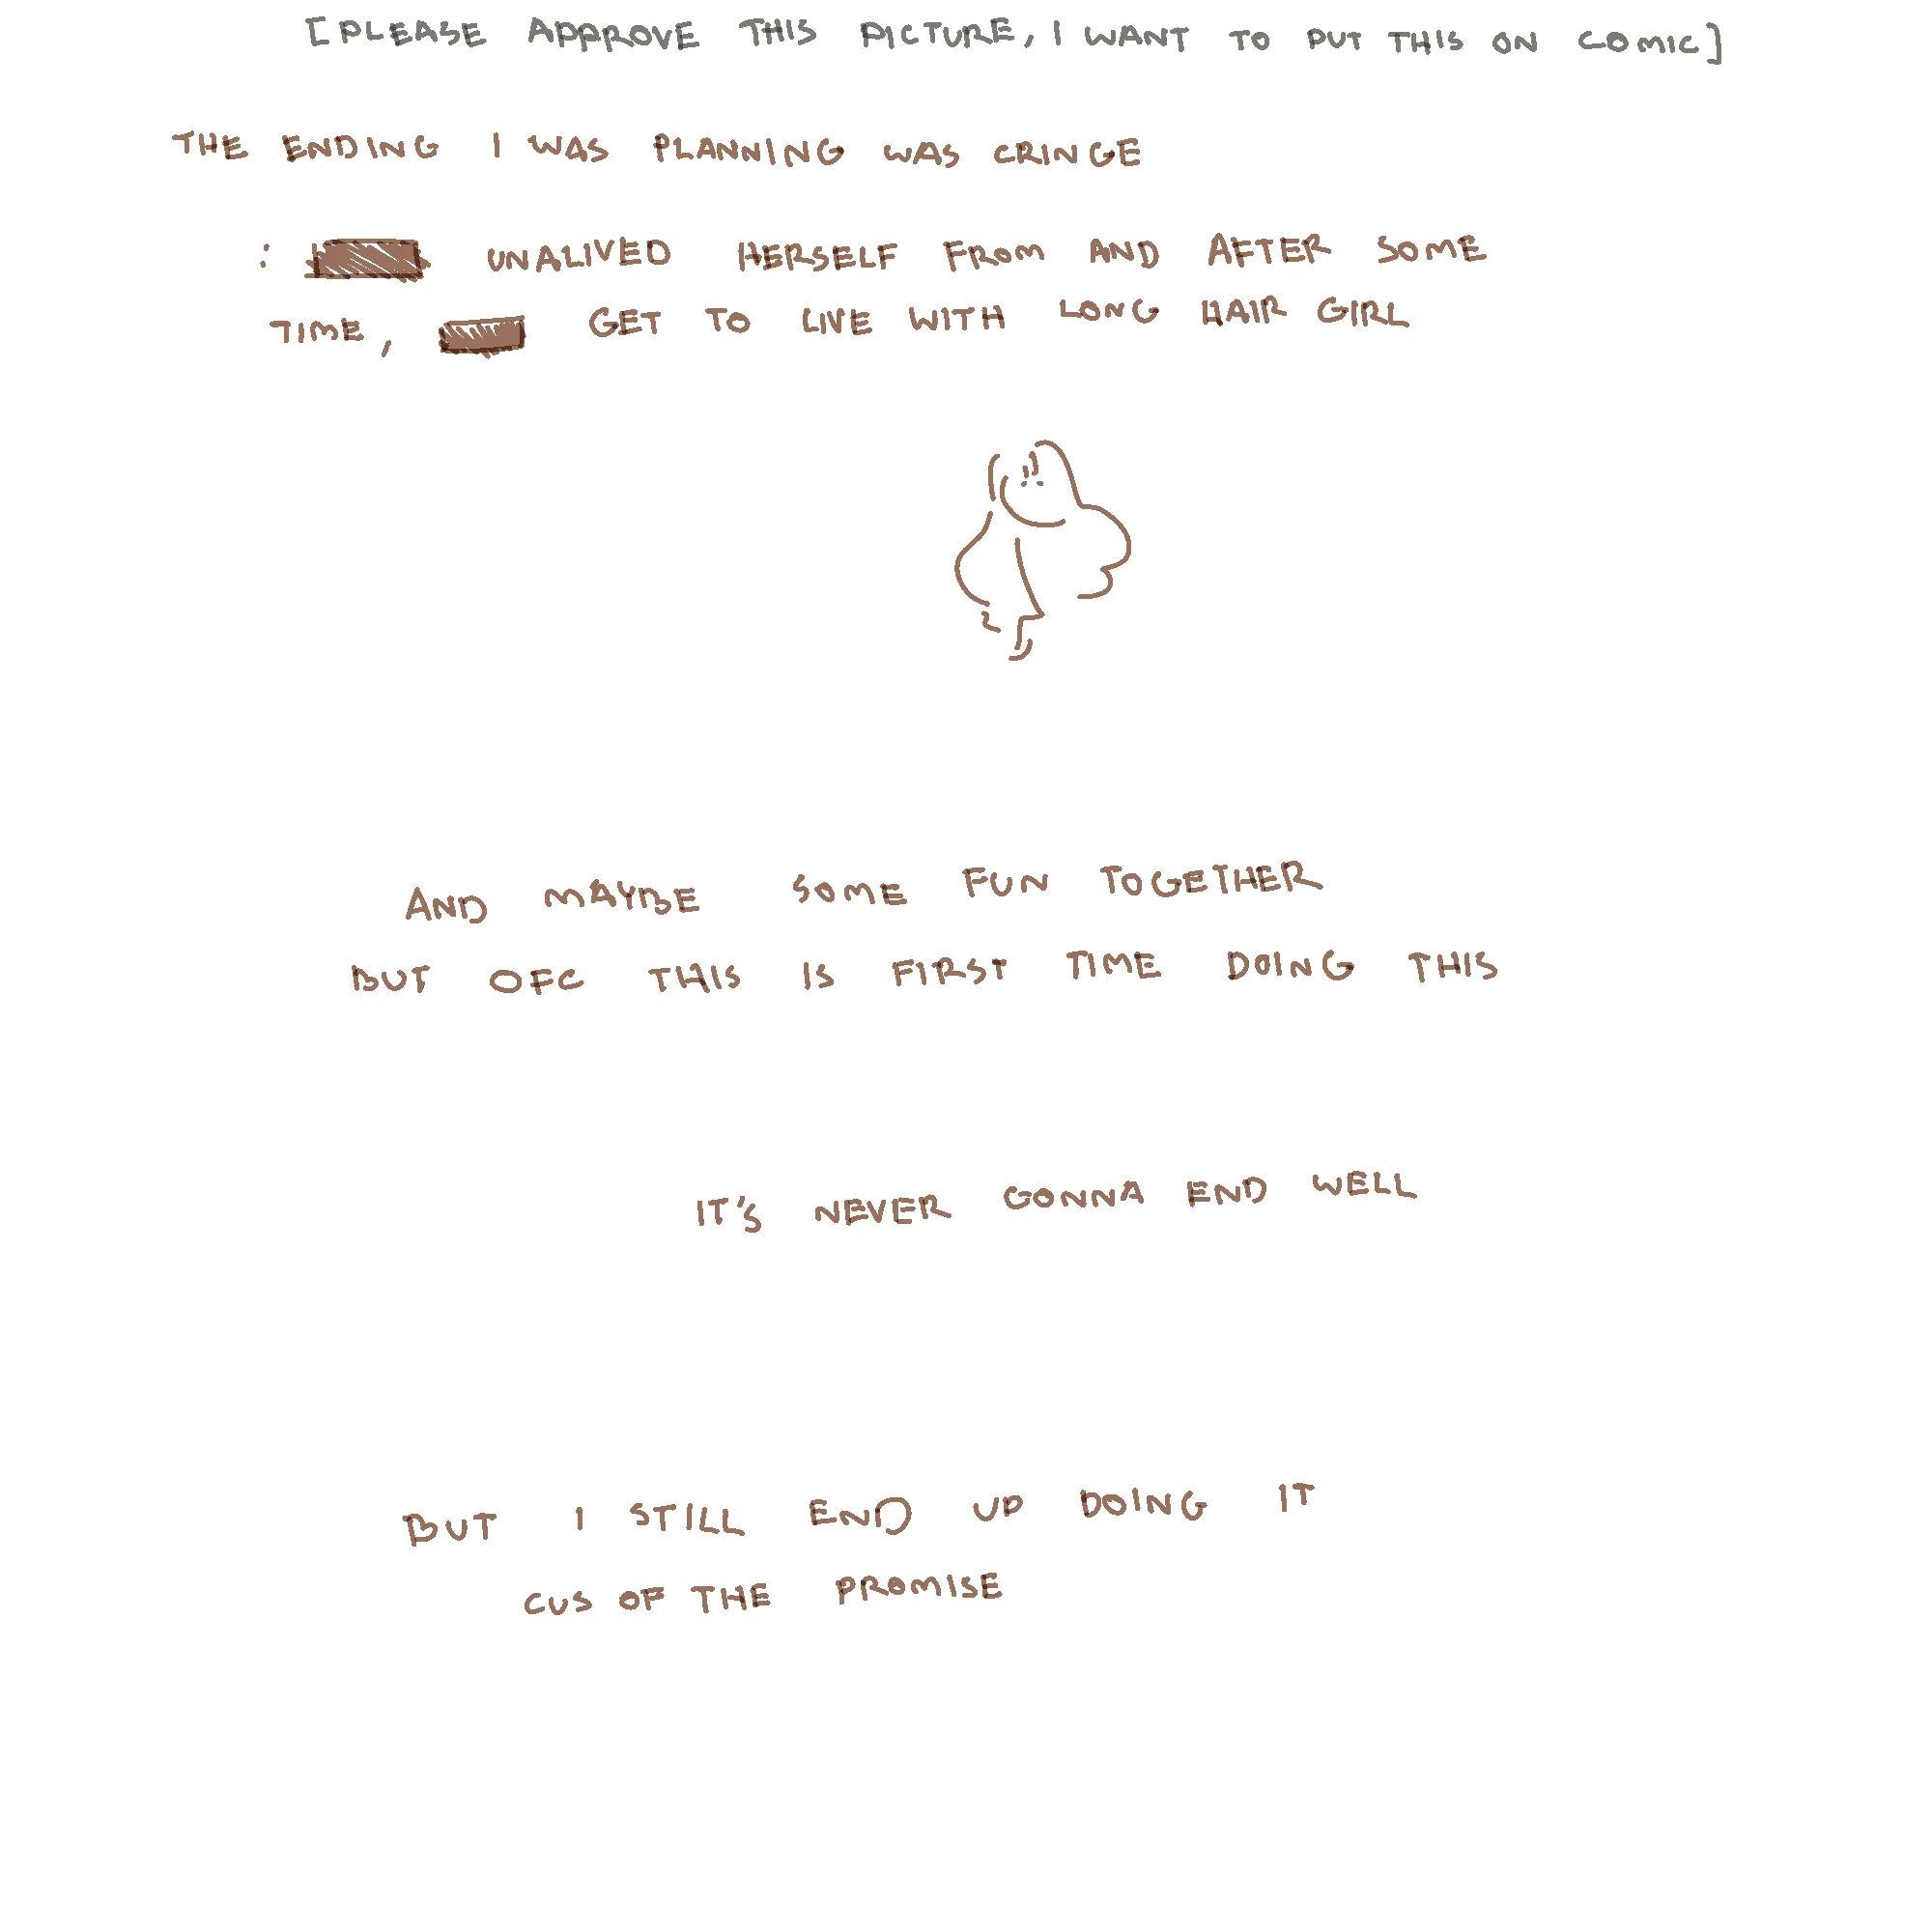 [PLEASE APPROVE THIS PICTURE, I WANT TO PUT THIS ON COMIC]
THE ENDING I WAS PLANNING WAS CRINGE
: UNALIVED HERSELF FROM AND AFTER SOME
TIME, GET TO LIVE WITH LONG HAIR GIRL
AND MAYBE SOME FUN TOGETHER
BUT OFC THIS IS FIRST TIME DOING THIS
IT'S NEVER GONNA END WELL
BUT I STILL END UP DOING IT
CUS OF THE PROMISE